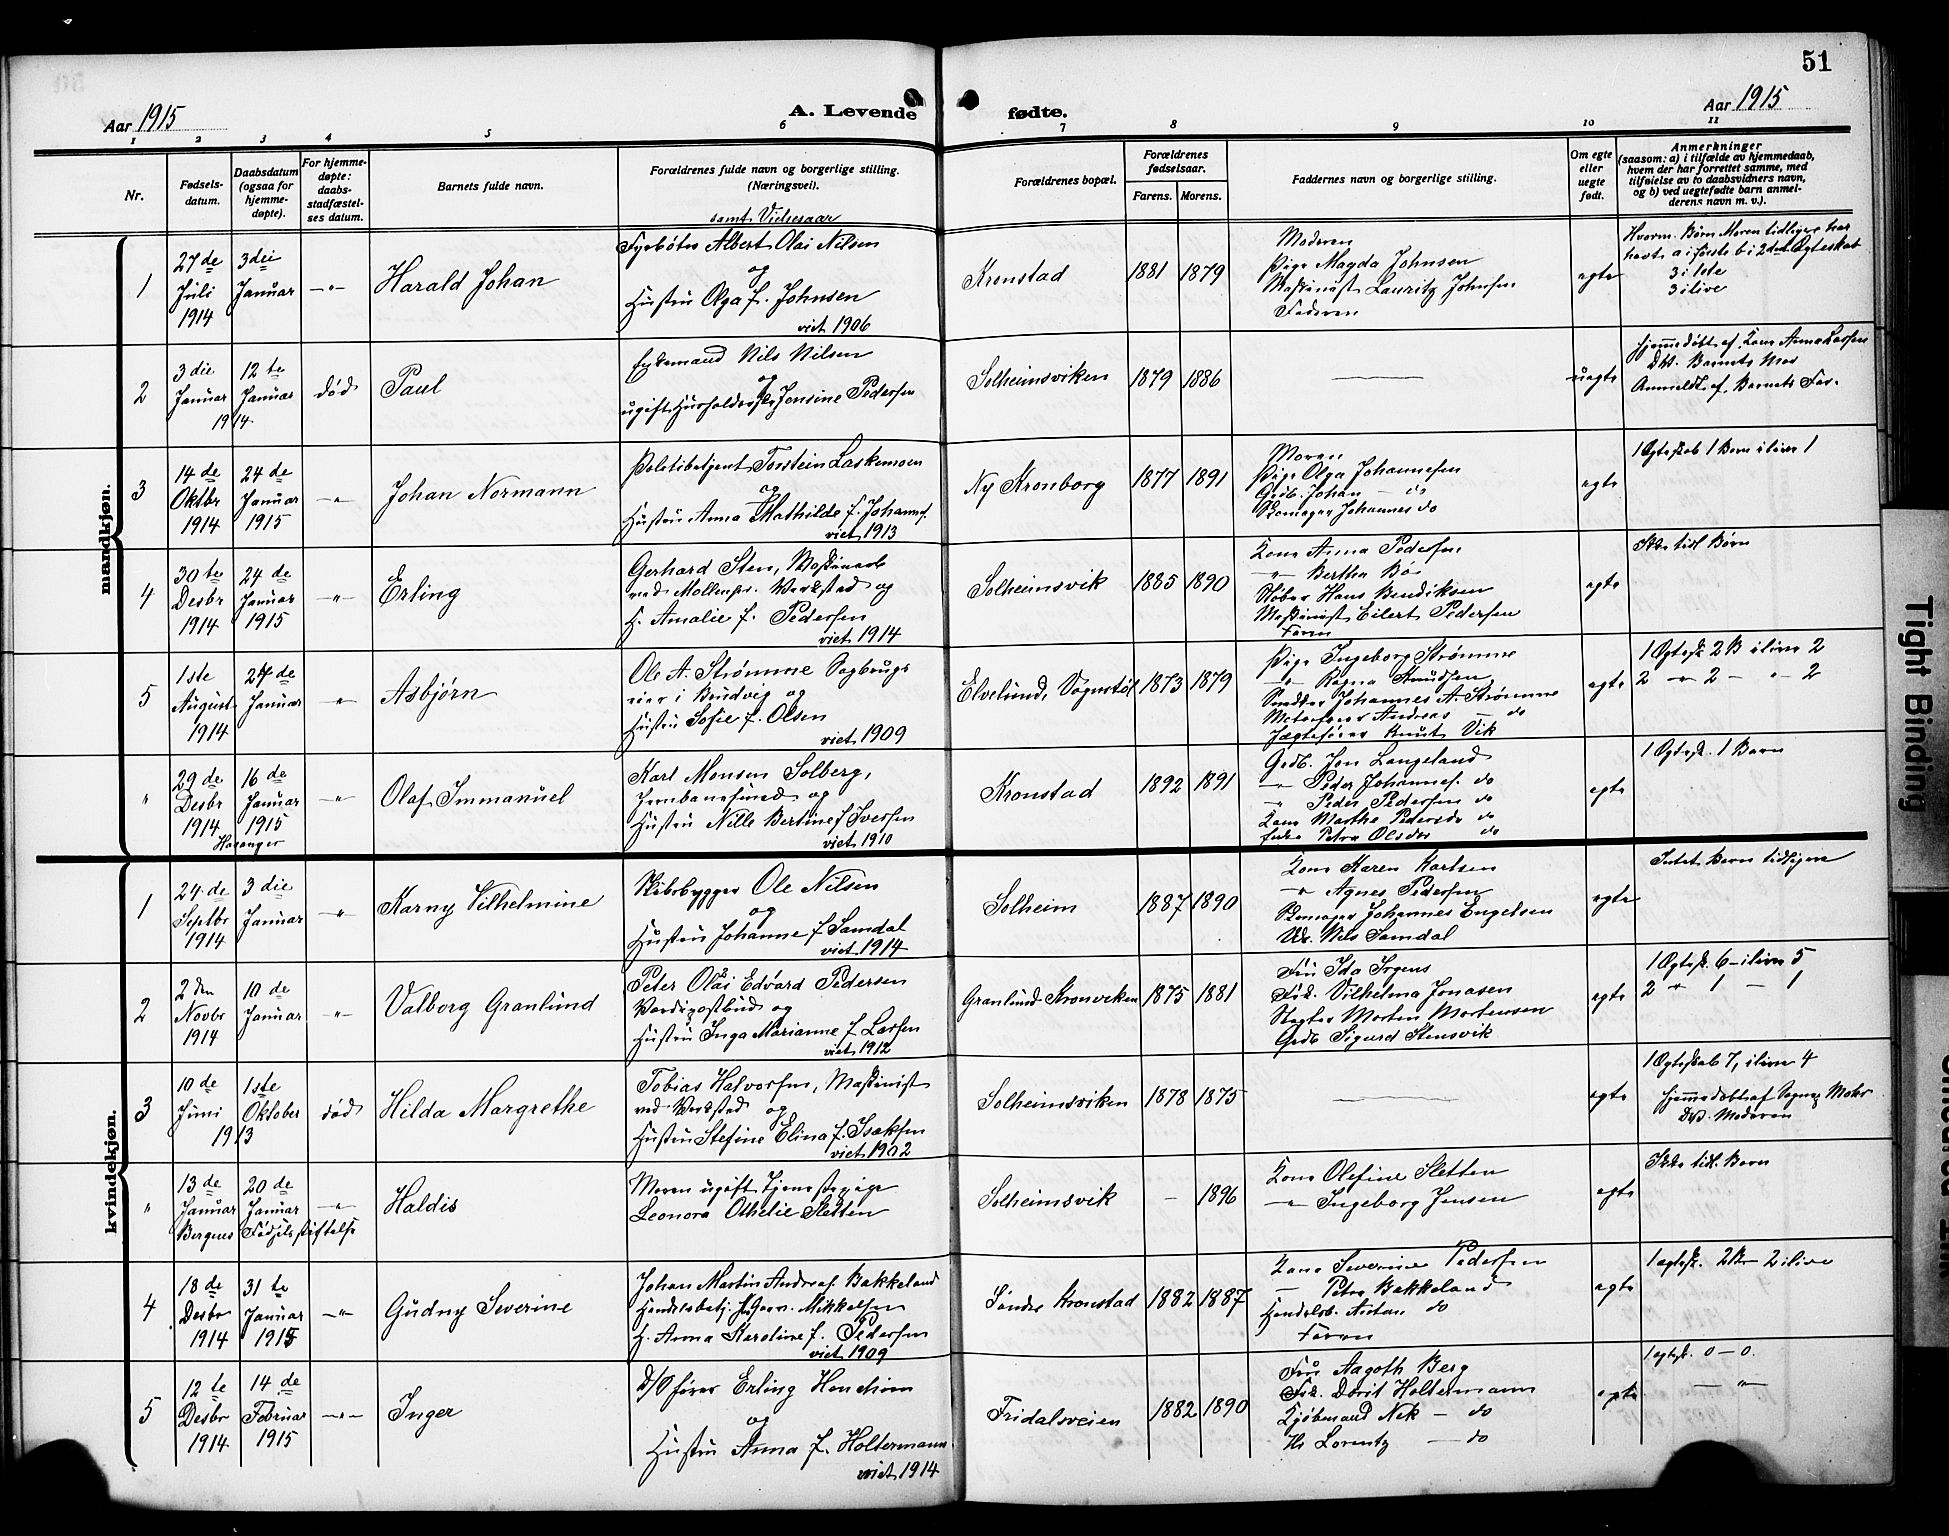 51
Aar 1915
A. Levende fødte.
Aar 1915
1 2 3 4 5 6 7 8 9 10 11
Nr.
Fødsels-
datum.
Daabsdatum
(ogsaa for
hjemme-
døpte).
For hjemme-
døpte:
daabs-
stadfæstel-
ses datum.
Barnets fulde navn.
Forældrenes fulde navn og borgerlige stilling.
(Næringsvei).
samt Vielsesaar
Forældrenes bopæl.
Forældrenes
fødselsaar.
Farens. Morens.
Faddernes navn og borgerlige stilling.
Om egte
eller
uegte
født.
Anmerkninger
(saasom: a) i tilfælde av hjemmedaab,
hvem der har forrettet samme, med
tilføielse av to daabsvidners navn,
og b) ved uegtefødte barn anmel-
derens navn m. v.).
mandkjøn.
1
27de
Juli
1914
3die
Januar
-"-
Harald Johan
Fyrbøter Albert Olai Nilsen
og
Hustru Olga f. Johnsen
viet 1906
Kronstad
1881
1879
Moderen
Pige Magda Johnsen
Maskinist Lauritz Johnsen
Faderen
egte
Hvorm. Børn Moren tidligere har
havt a i første b i 2det Ægteskab
3 i 1ste
3 ilive
2
3die
Januar
12te
Januar
1914
død
Paul
Enkemand Nils Nilsen
og
ugift Husholderske Jensine Pedersen
Solheimsviken
1879
1886
uegte
Hjemmedøbt af Kone Anna Larsen
Barnets Mor
Anmeldt af Barnets Far
3
14de
Oktbr
1914
24de
Januar
1915
-"-
Johan Normann
Politibetjent Torstein Laskemoen
og
Hustru Anna Mathilde f. Johannes.
viet 1913
Ny Kronborg
1877
1891
Moren
Pige Olga Johannesen
Grdb. Johan — do
Skomager Johannes do
egte
1 Ægteskab 1 Børn ilive 1
4
30te
Desbr
1914
24de
Januar
1915
-"-
Erling
Gerhard Sten, Maskinarb
ved Mollenpr. Verksted og
H. Amalie f. Pedersen
viet 1914
Solheimsvik
1885
1890
Kone Anna Pedersen
-"- Bertha Bö
Støber Hans Bendiksen
Maskinist Eilert Pedersen
Faren
egte
Ikke tidl Børn
5
1ste
August
1914
24de
Januar
-"-
Asbjørn
Ole A. Strømme Sagbrugs
eier i Brudvig og
Hustru Sofie f. Olsen
viet 1909
Elvelund, Vognstøl
1873
1879
Pige Ingeborg Strømme
-"- Ragna Knudsen
Snedker Johannes A. Strømme
Motorfører Andreas — do
Jægtefører Knut Vik
egte
1 Ægtesk 2 B ilive 2
2 -"- 2 — " — 2
"
29de
Desbr
1914
16de
Januar
1915
-"-
Olaf Immanuel
Karl Monsen Solberg,
Jernbanesmed og
Hustru Nille Bertine f Iversen
viet 1910
Kronstad
1892
1891
Grdb. Jon Langeland
-"- Peder Johannes. do
" Peder Pedersen do
Kone Marthe Pedersdr do
Enke Petra Olsdr do
egte
1 Ægtesk. 1 Barn
kvindekjøn.
1
24de
Septbr
1914
3die
Januar
-"-
Karny Vilhelmine
Skibsbygger Ole Nilsen
og
Hustru Johanne f Samdal
viet 1914
Solheim
1887
1890
Kone Karen Karlsen
-"- Agnes Pedersen
Skomager Johannes Engelsen
Uk. Nils Samdal
egte
Intet Barn tidligere
2
2den
Novbr
1914
10de
Januar
-"-
Valborg Granlund
Peter Olai Edvard Pedersen
Verdipostbud og
Hustru Inga Marianne f Larsen
viet 1912
Granlund Kronviken
1875
1881
Fru Ida Irgens
Frk. Vilhelma Jonasen
Slagter Morten Mortensen
Grdb Sigurd Stensvik
egte
1 Ægtesk. 6 — ilive 5
2 " 1 — 1
3
10de
Juni
1ste
Oktober
1913
død
Hilda Margrethe
Tobias Halvorsen, Maskinist
ved Verksted og
Hustru Stefine Elina f. Isaksen
viet 1902
Solheimsviken
1878
1875
egte
1 Ægteskab 7, ilive 4
Hjemmedøbt af Sogne Mohr
Moderen
"
13de
Januar
Bergens
20de
Januar
Fødselsstiftelse
-"-
Haldis
Moren ugift Tjenestepige
Leonora Othelie Sletten
Solheimsvik
—
1896
Kone Olefine Sletten
-"- Ingeborg Jensen
egte
Ikke tidl. Børn
4
18de
Desbr
1914
31te
Januar
1915
-"-
Gudny Severine
Johan Martin Andreas. Bakkeland
Handelsbetj. Mikkelsen
H. Anna Karoline f. Pedersen
viet 1909
Søndre Kronstad
1882
1887
Kone Severine Pedersen
— Petra Bakkeland
Handelsb. Anton do
Faren
egte
1 ægtesk. 2 Br 2 ilive
5
12te
Desbr
1914
14de
Februar
1915
-"-
Inger
D/S fører Erling
og
Hustru Anna f. Holtermann
viet 1914
Fridalsveien
1882
1890
Fru Aagoth Berg
Frk. Dorit Holtermann
Kjøbmand Nik — do
Hr Lorentz — do
egte
1 egtesk. 0 — 0
— " —
Tight Binding